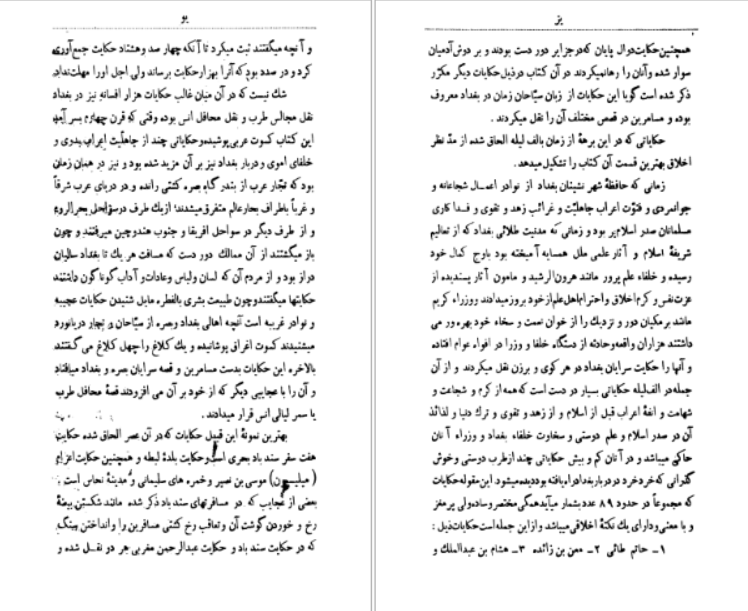 یو
و آنچه میگفتند ثبت میکرد تا آنکه چهار صد و هشتاد حکایت جمع آوری
کرد و در صدد بود که آنرا بهزار حکایت برساند ولی اجل اورا مهلت نداد.
شك نیست که در آن میان غالب حکایات هزار افسانه نیز در بغداد
نقل مجالس طرب و نقل محافل انس بوده وقتی که قرن چهارم بسر آمد
این کتاب کسوت عربی پوشیده و حکایاتی چند از جاهلیت اعراب بدوی و
خلفای اموی و دربار بغداد نیز بر آن مزید شده بود و نیز در همان زمان
بود که تجار عرب از بندر گاه بصره کشتی رانده و در دریای عرب شرقاً
و غرباً باطراف بحار عالم متفرق میشدند؛ از یك طرف در سواحل بحرالروم
و از طرف دیگر در سواحل افریقا و جنوب هندوچین میرفتند و چون
باز میگشتند از آن ممالك دور دست که مسافت هر یك تا بغداد سالیان
دراز بود و از مردم آن که لسان ولباس وعادات و آداب گوناگون داشتند
حکایتها میگفتند و چون طبیعت بشری بالفطره مایل شنیدن حکایات عجیبه
و نوادر غریبه است آنچه اهالی بغداد وبصره از سیّاحان و تجار دریانورد
میشنیدند کسوت اغراق پوشانیده و یك کلاغ را چهل کلاغ می گفتند
بالاخره این حکایات بدست مسامرین و قصه سرایان بصره و بغداد میافتاد
و آن را با عجایبی دیگر که از خود بر آن می افزودند قصهٔ محافل طرب
یا سمر لیالی انس قرار میدادند .
بهترین نمونهٔ این قبیل حکایات که در آن عصر الحاق شده حکایت
هفت سفر سند باد بحری است و حکایت بلدهٔ لبطه و همچنین حکایت اعزام
( میلیسیون) موسی بن نصیر و خمره های سلیمانی و مدینهٔ نحاس است ؛
بعضی از عجایب که در مسافرتهای سند باد ذکر شده مانند شکستن بیضهٔ
رخ و خوردن گوشت آن و تعاقب رخ کشتی مسافرین را و انداختن پیتگ
که در حکایت سند باد و حکایت عبدالرحمن مغربی هر دو نقـل شده و
یز
همچنین حکایت دوال پایان که در جزایر دور دست بودند و بر دوش آدمیان
سوار شده و آنان را رها نمیکردند در آن کتاب در ذیل حکایات دیگر مکرّر
ذکر شده است گویا این حکایات از زبان سیّاحان زمان در بغداد معروف
بوده و مسامرین در قصص مختلف آن را نقل میکردند .
حکایاتی که در این برههٔ از زمان بالف لیله الحاق شده از مدّ نظر
اخلاق بهترین قسمت آن کتاب را تشکیل میدهد .
زمانی که حافظهٔ شهر نشینان بغداد از نوادر اعمـال شجاعانه و
جوانمردی و فتوّت اعراب جاهلیّت و غرائب زهد و تقوی و فـدا کاری
مسلمانان صدر اسلام پر بود و زمانی که مدنیت طلائی بغداد که از تعالیم
شریفهٔ اسلام و آثار علمی ملل همسایه آمیخته بود باوج کمال خود
رسیده و خلفاء علم پرور مانند هرون الرشید و مامون آثار پسندیده از
عزت نفس و کرم اخلاق و احترام اهل علم از خود بروز میدادند و وزراء کریم
مانند برمکیان دور و نزدیك را از خوان نعمت و سخاء خود بهره ور می
داشتند هزاران واقعه و حادثه از دستگاه خلفا و وزرا در افواه عوام افتاده
و آنها را حکایت سرایان بغداد در هر کوی و برزن نقل میکردند و از آن
جمله در الف لیله حکایاتی بسیار در دست است که همه از کرم و شجاعت و
شهامت و انفهٔ اعراب قبل از اسلام و از زهد و تقوی و ترك دنیا و لذائذ
آن در صدر اسلام و علم دوستی و سخاوت خلفاء بغداد و وزراء آنان
حاکی میباشد و در آنان کم و بیش حکایاتی چند از طرب دوستی و خوش
گذرانی که خرد خرد در دربار بغداد راه یافته بود دیده میشود. این مقوله حکایات
که مجموعاً در حدود ۸۹ عدد بشمار میآید همگی مختصر و ساده ولی پر مغز
و با معنی و دارای یك نکتهٔ اخلاقی میباشد و از این جمله است حکایات ذیل :
۱ـ حاتم طائی ۲ـ معن بن زائده ۳ـ هشام بن عبدالملك و